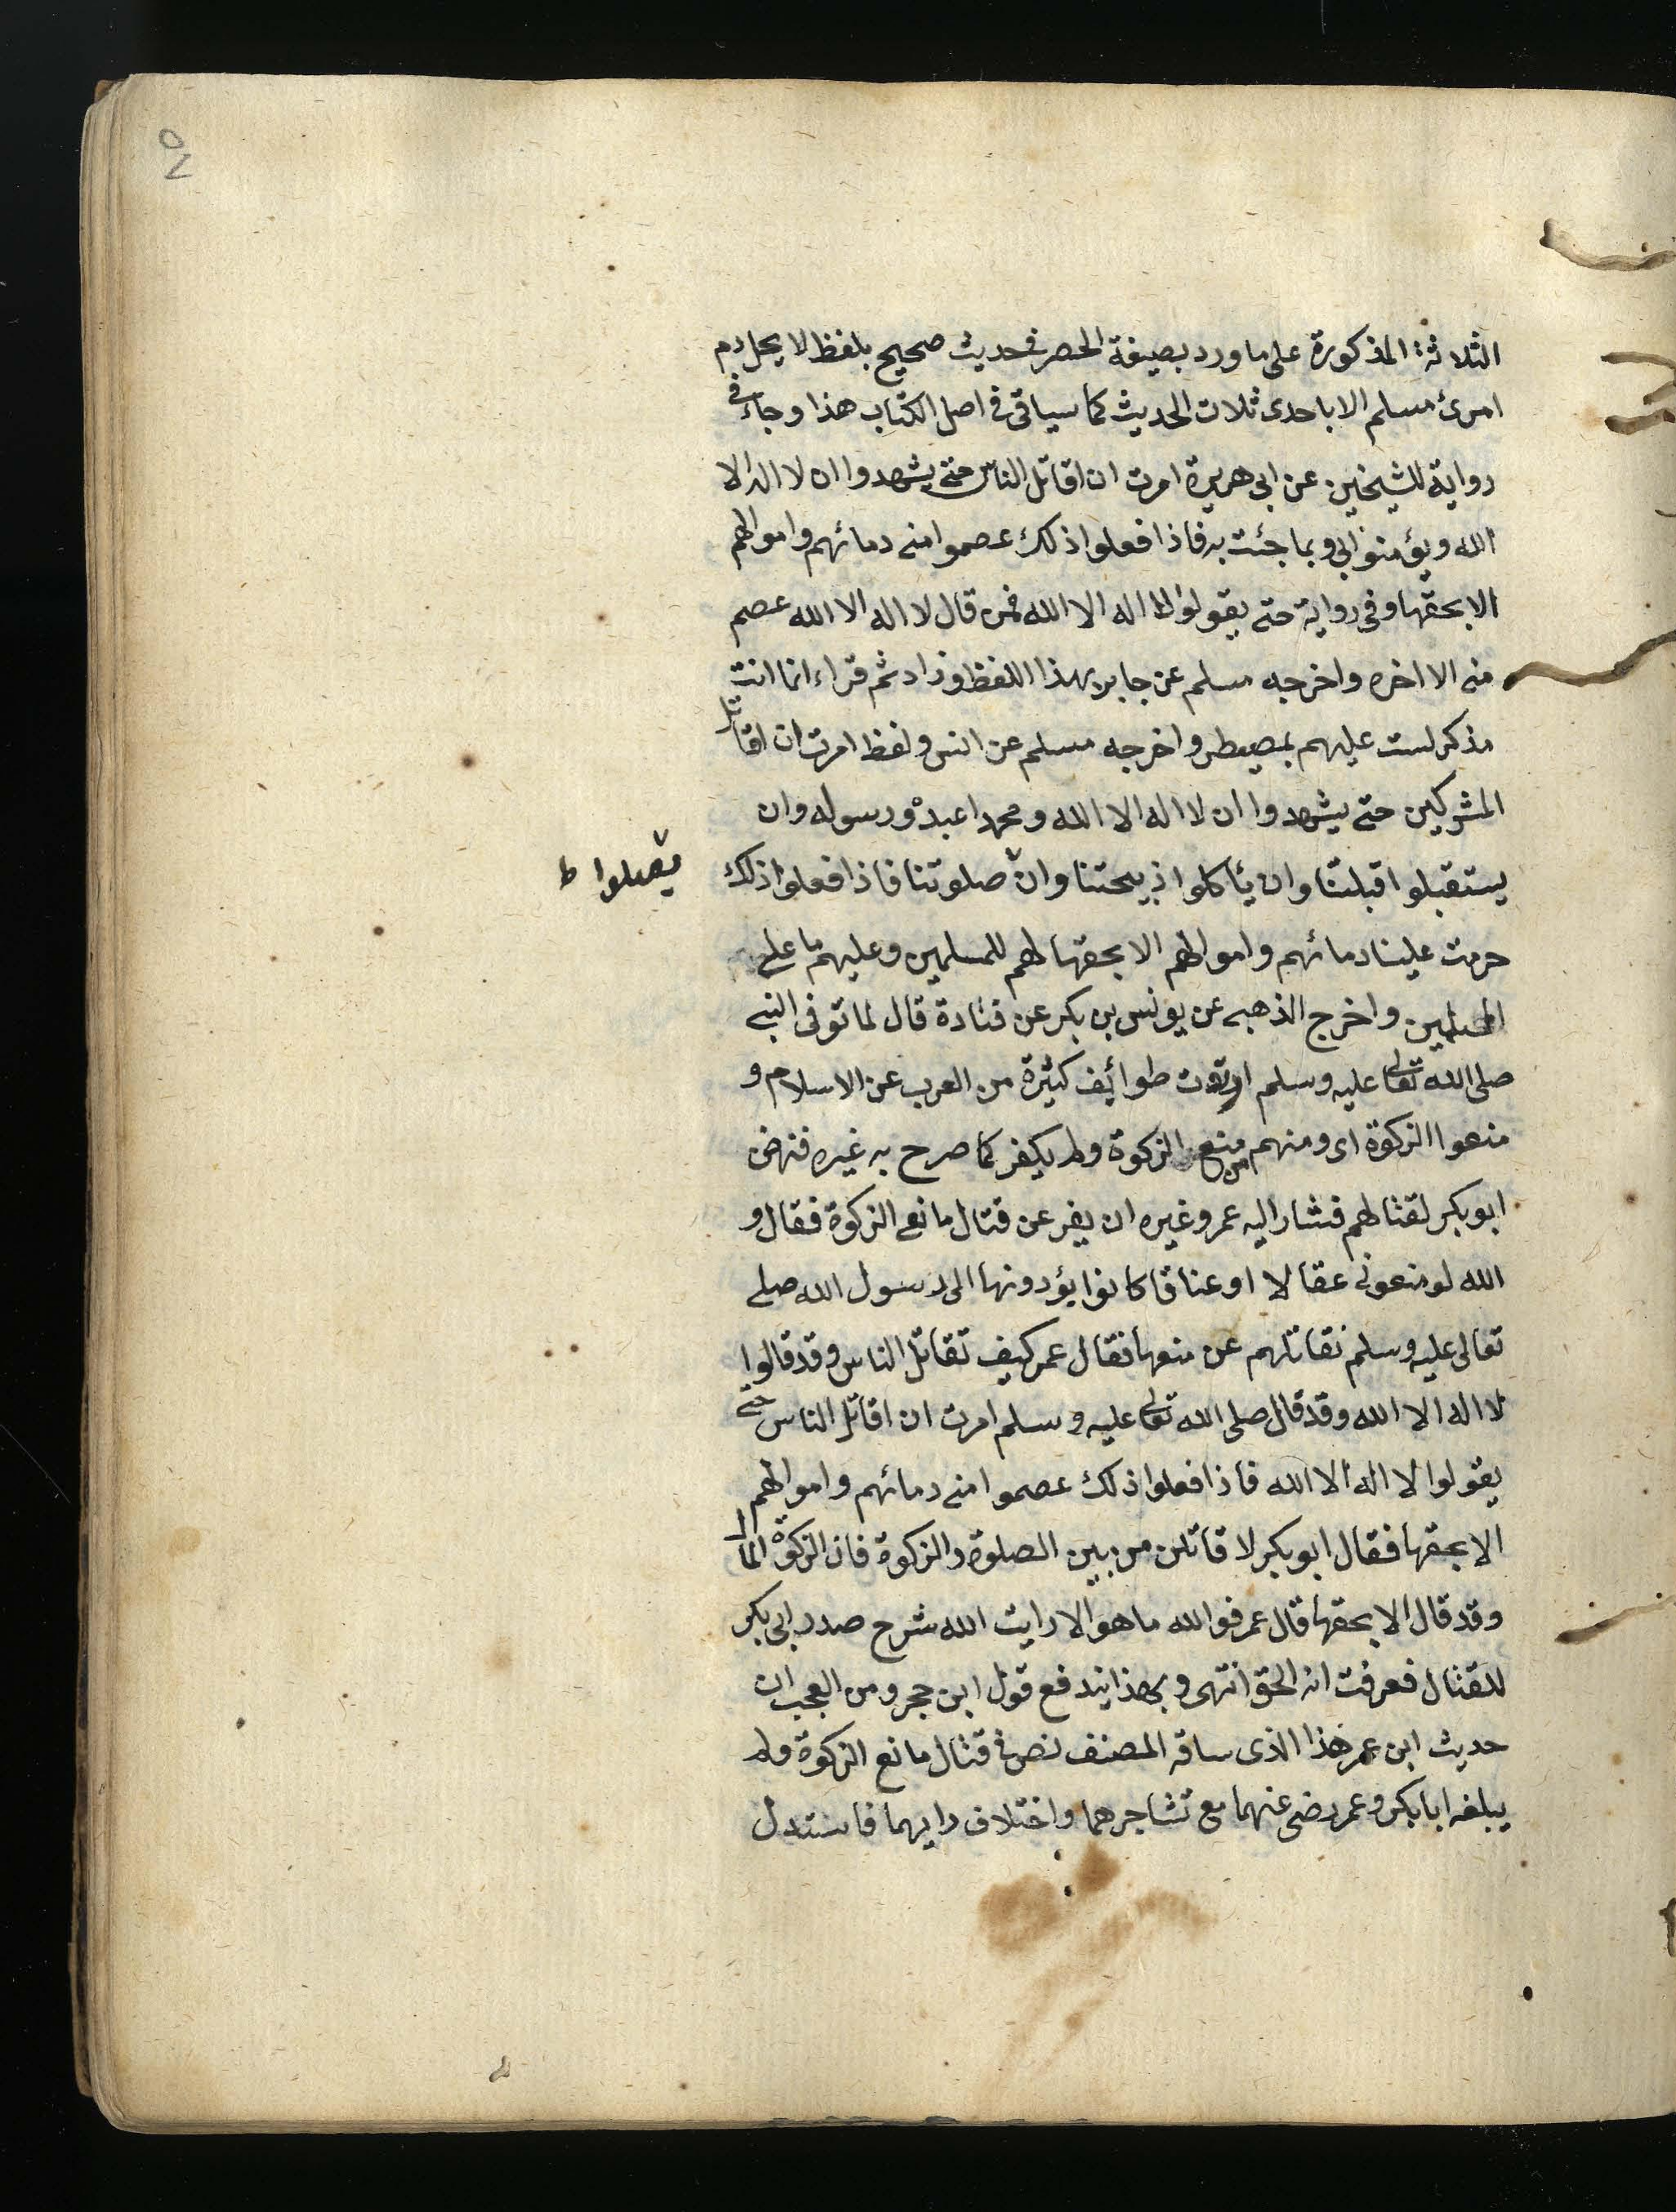 الثلاثة المذكورة على ما ورد بصيغة الحصر فى حديث صحيح بلفظ لا يحل دم
امرئ مسلم الا باحدى ثلاث الحديث كما سياتى فى اصل الكتاب هذا وجاء فى
رواية للشيخين عن ابى هريرة امرت ان اقاتل الناس حتى يشهدوا ان لا اله الا
الله ويؤمنوا بى وبما جئت به فاذا فعلوا ذلك عصموا منى دمائهم واموالهم
الا بحقها وفى رواية حتى يقولوا لا اله الا الله فمن قال لا اله الا الله عصم
منى الا اخره واخرجه مسلم عن جابر بهذا اللفظ وزاد ثم قراء انما انت
مذكر لست عليهم بمصيطر واخرجه مسلم عن انس ولفظ امرت ان اقاتل
المشركين حتى يشهدوا ان لا اله الا الله ومحمدا عبده ورسوله وان
يستقبلوا قبلتنا وان يأكلوا ذبيحتنا وان صلوتنا فاذا فعلوا ذلك
يصلوا ط
حرمت علينا دمائهم واموالهم الا بحقها لهم للمسلمين وعليهم ما على
المسلمين واخرج الذهبى عن يونس بن بكر عن قتادة قال لما توفى النبى
صلى الله تعالى عليه وسلم ارتدت طوائف كثيرة من العرب عن الاسلام و
منعوا الزكوة اى ومنهم من منع الزكوة ولم يكفر كما صرح به غيره فنهض
ابو بكر لقتالهم فشار اليه عمر وغيره ان يفر عن قتال مانعى الزكوة فقال و
الله لو منعونى عقالا او عناقا كانوا يؤدونها الى رسول الله صلى
تعالى عليه وسلم نقاتلهم عن منعها فقال عمر كيف تقاتل الناس وقد قالوا
لا اله الا الله وقد قال صلى الله تعالى عليه وسلم امرت ان اقاتل الناس حتى
يقولوا لا اله الا الله فاذا فعلوا ذلك عصموا منى دمائهم واموالهم
الا بحقها فقال ابو بكر لا قاتلن من بين الصلوة والزكوة فان الزكوة المال
وقد قال الا بحقها قال عمر فوالله ما هو الا رايت الله شرح صدر ابى بكر
للقتال فعرفت انه الحق انتهى وبهذا يندفع قول ابن حجر ومن العجب ان
حديث ابن عمر هذا الذى ساقه المصنف نص فى قتال مانع الزكوة ولم
يبلغه ابا بكر وعمر رضى عنهما مع تشاجرهما واختلاف رايهما فاستدل